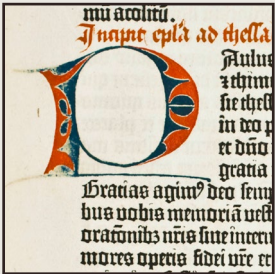 mū acolitū.
Incipit epl'a ad thessa
PAulus
⁊ thim
sie thess
in deo p
et dño
gratia
Gratias agim⁹ deo semp
bus vobis memoriā vest
oratōnibꝫ nr̄is sine interm
mores operis fidei vr̄e et